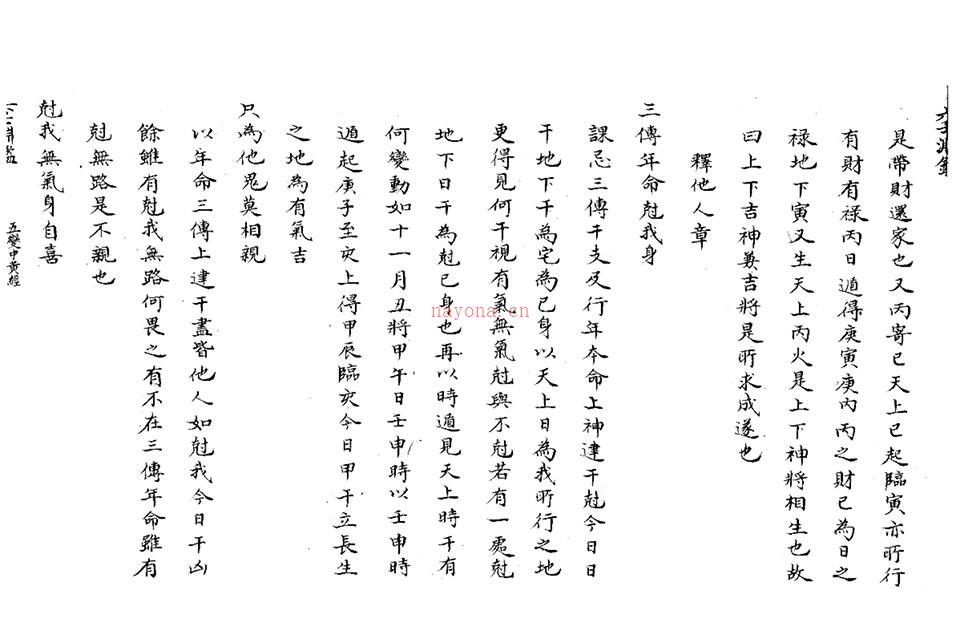 是帶財還家也又丙寄巳天上巳起臨寅亦所行
有財有祿丙日遁得庚寅庚內丙之財巳為日之
祿地下寅又生天上丙火是上下神將相生也故
曰上下吉神兼吉將是所求成遂也
釋他人章
三傳年命尅我身
課忌三傳干支及行年本命上神建干尅今日日
干地下干為宅為已身以天上日為我所行之地
更得見何干視有氣無氣尅與不尅若有一處尅
地下日干為尅已身也再以時遁見天上時干有
何變動如十一月丑將甲午日壬申時以壬申時
遁起庚子至亥上得甲辰臨亥今日甲干立長生
之地為有氣吉
只為他鬼莫相親
以年命三傳上建干盡皆他人如尅我今日干凶
餘雖有尅我無路何畏之有不在三傳年命雖有
尅無路是不親也
尅我無氣身自喜
五變中黃經
nayona.cn